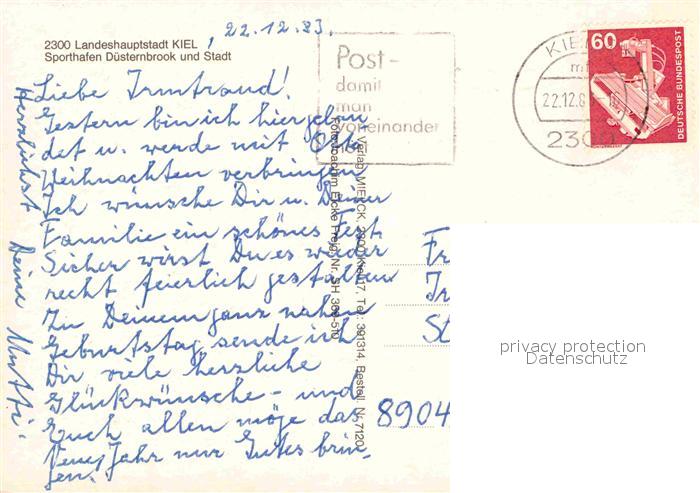 22.12.83.
2300 Landeshauptstadt KIEL
Sporthafen Düsternbrook und Stadt
Liebe Irmtraud!
Gestern bin ich hier gelan
det u. werde mit
Weihnachten verbringen
Ich wünsche Dir u. Deiner
Familie ein schönes Fest.
Sicher wirst Du es wieder
recht feierlich gestalten
Zu Deinem ganz nahen
Geburtstag sende ich
Dir viele herzliche
Glückwünsche - und
Euch allen möge das
Neue Jahr nur Gutes brin-
gen.
Herzlichst Deine Mutti.
Post-
damit
man
voneinander
hört
KIEL
22.12.8
2300
60
DEUTSCHE BUNDESPOST
Verlag MIERCK, 2300 Kiel 17, Tel.: 391314, Bestell. Nr. 7120
Foto: Joachim Eicke Freig. Nr. SH 360-510
Fr
Ir
St
8904
privacy protection
Datenschutz